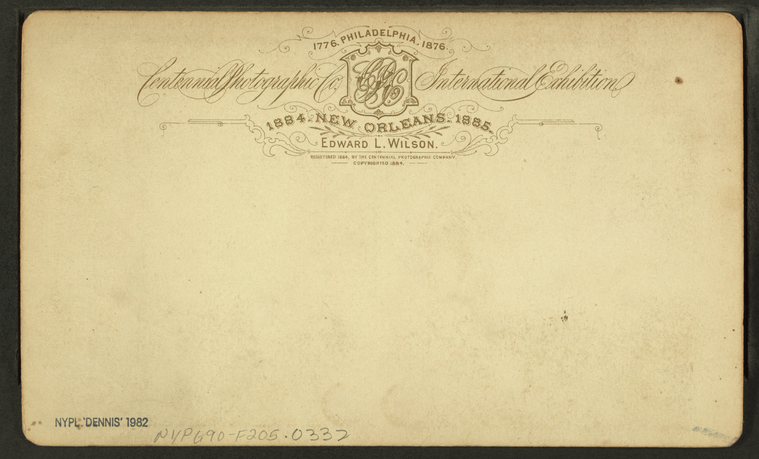 1776. PHILADELPHIA. 1876.
Centennial Photographic Co. CPC International Exhibition
1884. NEW ORLEANS. 1885.
EDWARD L. WILSON.
REGISTERED 1884, BY THE CENTENNIAL PHOTOGRAPHIC COMPANY.
COPYRIGHTED 1884.
NYPL 'DENNIS' 1982
NYPG90-F205.0332